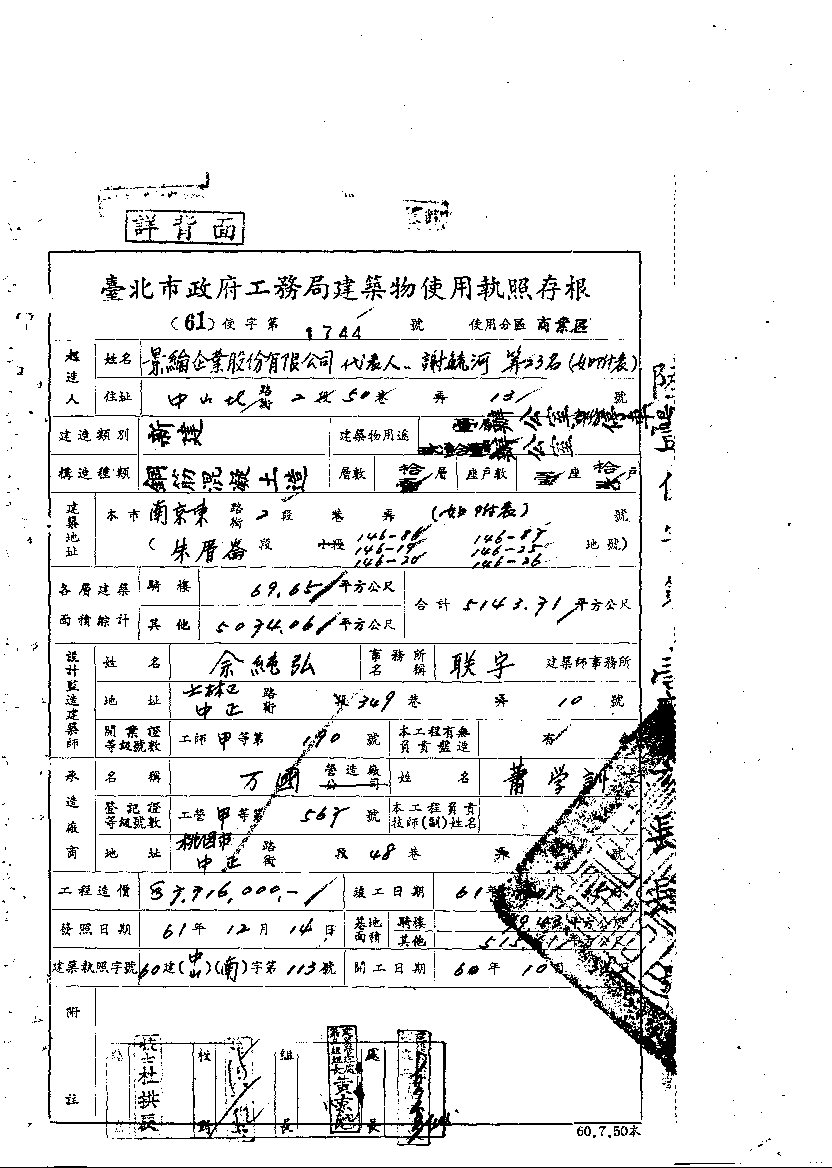 詳背面
臺北市政府工務局建築物使用執照存根
(61)使字第 1744 號 使用分區 商業區
起造人 姓名 景綸企業股份有限公司 代表人 謝毓河 等23名(如附表)
住址 中山北 路街 2 段 50 巷 弄 13 號
建造類別 新建 建築物用途 辦公室
構造種類 鋼筋混凝土造 層數 拾 層 座戶數 座 拾 戶
建築地址 本市 南京東 路街 2 段 巷 弄 (如附表) 號
(朱厝崙 段 小段 146-19 146-25 146-26 地號)
各層建築面積綜計 騎樓 69.65 平方公尺 合計 5143.71 平方公尺
其他 5074.06 平方公尺
設計監造建築師 姓名 余純弘 事務所名稱 联宇 建築師事務所
地址 士林區中正 路街 段 349 巷 弄 10 號
開業證等級號數 工師 甲 等第 190 號 本工程有無負責監造 有
承造廠商 名稱 万國 營造廠公司 姓名 蕭学訓
登記證等級號數 工營 甲 等第 567 號 本工程負責技師(副)姓名
地址 桃園市中正 路街 段 48 巷 弄 號
工程造價 7,716,000.- 竣工日期 61 年
發照日期 61 年 12 月 14 日 基地面積 騎樓 平方公尺
其他
建築執照字號 60 建(中山)(南)字第 113 號 開工日期 60 年 10 月
附註
技士杜拱辰 校對 組長 黃 處長
60.7.50本